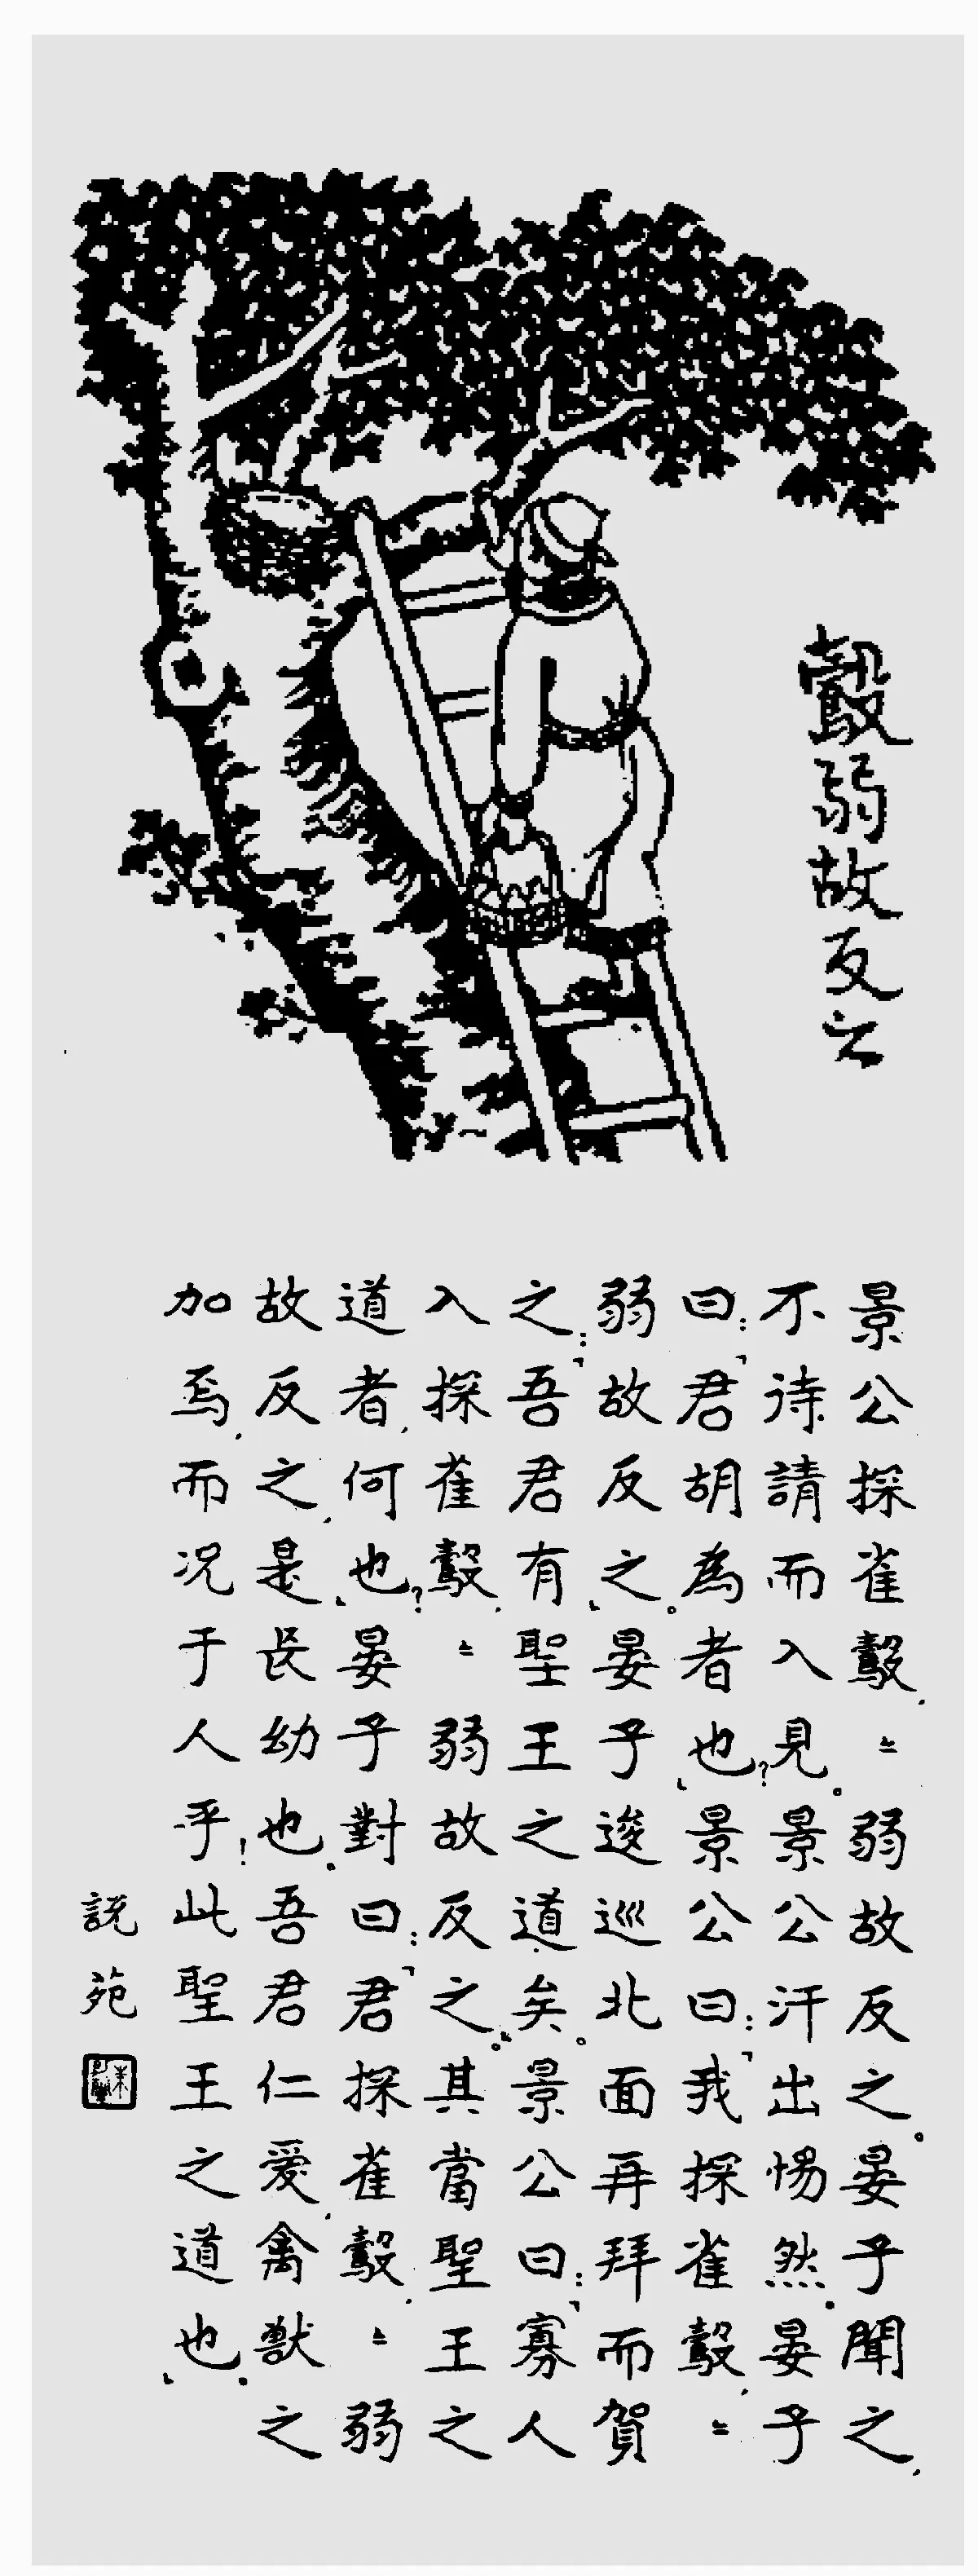 鷇弱故反之
景公探雀鷇,〻弱故反之。晏子聞之,
不待請而入見。景公汗出惕然。晏子
曰:「君胡為者也?」景公曰:「我探雀鷇,〻
弱故反之。」晏子逡巡北面再拜而賀
之:「吾君有聖王之道矣。景公曰:「寡人
入探雀鷇,〻弱故反之。其當聖王之
道者,何也?」晏子對曰:「君探雀鷇,〻弱
故反之,是長幼也。吾君仁愛,禽獸之
加焉,而況于人乎!此聖王之道也。」
說苑